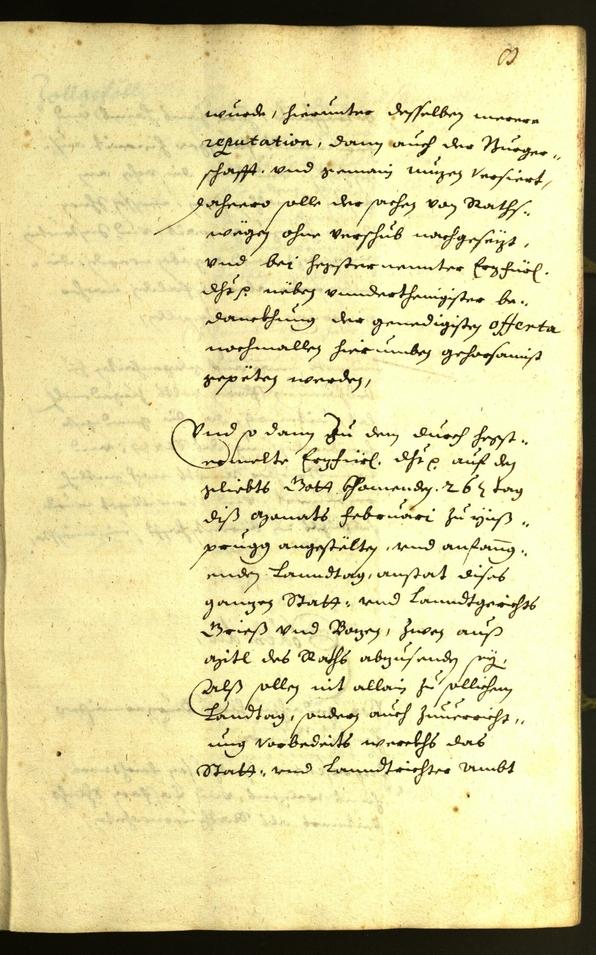 wurde, hierunter desselben merere
reputation, dann auch der Burger-
schafft. vnd gemain nuzen versiert,
dahero solle der sachen von Raths-
wegen ohne verschub nachgesezt,
vnd bej hegsternennter Erzfürl.
Dht. neben vnnderthenigister be-
danckhung der genedigisten offerta
nochmallen hierumben gehorsamist
gepeten werden,
Vnd so dann Zu dem durch hegst-
ermelte Erzfürl. Dht. auf den
geliebts Gott khomenden. 26 tag
diß Monats Februari zu Yns-
prugg angestelten, vnd anfang-
enden Lanndtag, anstat dises
ganzen Statt- vnd Lanndtgerichts
Grieß vnd Bozen, zwen auß
mitl des Raths abzusenden sein,
Alß sollen nit allain zu sollichem
Landtag, sondern auch zuuerricht-
ung vorbedeits werckhs das
Statt- vnd Lanndtrichter Ambt